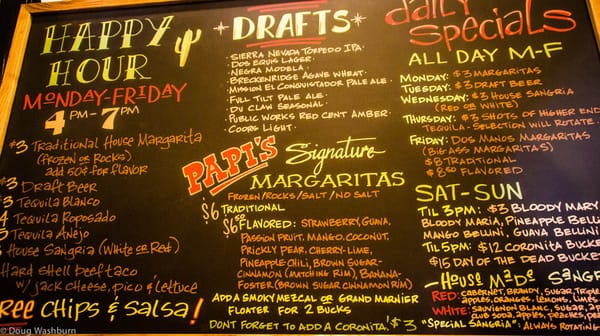 HAPPY
HOUR
MONDAY-FRIDAY
4PM-7PM
$3 Traditional House Margarita
(Frozen or Rocks)
add 50¢ for flavor
$3 Draft Beer
Tequila Blanco
4 Tequila Roposado
5 Tequila Añejo
House Sangria (White or Red)
Hard shell beef taco
w/ jack cheese, pico & lettuce
FREE CHIPS & SALSA!
DRAFTS
· Sierra Nevada Torpedo IPA ·
· Dos Equis Lager ·
· Negra Modela ·
· Breckenridge Agave Wheat ·
· Mission El Conquistador Pale Ale ·
· Full Tilt Pale Ale ·
· Du Claw Seasonal ·
· Public Works Red Cent Amber ·
· Coors Light ·
PAPI'S Signature
MARGARITAS
FROZEN/ROCKS/SALT/NO SALT
$6 TRADITIONAL
$6.50 FLAVORED: STRAWBERRY, GUAVA,
PASSION FRUIT, MANGO, COCONUT,
PRICKLY PEAR, CHERRY-LIME,
PINEAPPLE CHILI, BROWN SUGAR-
CINNAMON (MATCHING RIM), BANANA-
FOSTER (BROWN SUGAR CINNAMON RIM)
ADD A SMOKY MEZCAL OR GRAND MARNIER
FLOATER FOR 2 BUCKS
DON'T FORGET TO ADD A CORONITA! $3
daily
Specials
ALL DAY M-F
MONDAY: $3 MARGARITAS
TUESDAY: $3 DRAFT BEER
WEDNESDAY: $3 HOUSE SANGRIA
(RED OR WHITE)
THURSDAY: $3 SHOTS OF HIGHER END
TEQUILA - SELECTION WILL ROTATE
FRIDAY: DOS MANOS MARGARITAS
(BIG ASS MARGARITAS)
$8 TRADITIONAL
$8.50 FLAVORED
SAT-SUN
TIL 3PM: $3 BLOODY MARY
BLOODY MARIA, PINEAPPLE BELLINI
MANGO BELLINI, GUAVA BELLINI
TIL 5PM: $12 CORONITA BUCKET
$15 DAY OF THE DEAD BUCKET
- HOUSE MADE SANGRIA
RED: CABERNET, BRANDY, SUGAR, TRIPLE
apples, oranges, lemons, limes
WHITE: SAUVIGNON BLANC, SUGAR,
club soda, apples, peaches,
"SPECIAL SANGRIA": ALWAYS ROTATING
© Doug Washburn